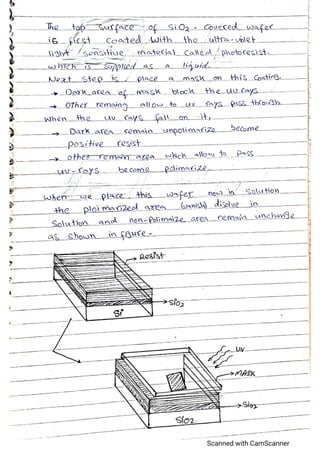 The top surface of SiO2 - covered wafer
is first coated with the ultra-violet
light / sensitive material called / photoresist.
which is supplied as a liquid.
Next step is, place a mask on this coating.
→ Dark area of mask block the uv rays
→ Other remaing allow to uv rays pass through.
When the uv rays fall on it,
→ Dark area remain unpolimarize become
positive resist
→ other remain area which allow to pass
uv-rays become polimarize.
When we place this wafer now in solution
the plolmarized area (vanish) disolve in
Solution and non-polimaize area remain unchange
as shown in figure -
Resist
SiO2
Si
UV
MASK
SiO2
SiO2
Scanned with CamScanner